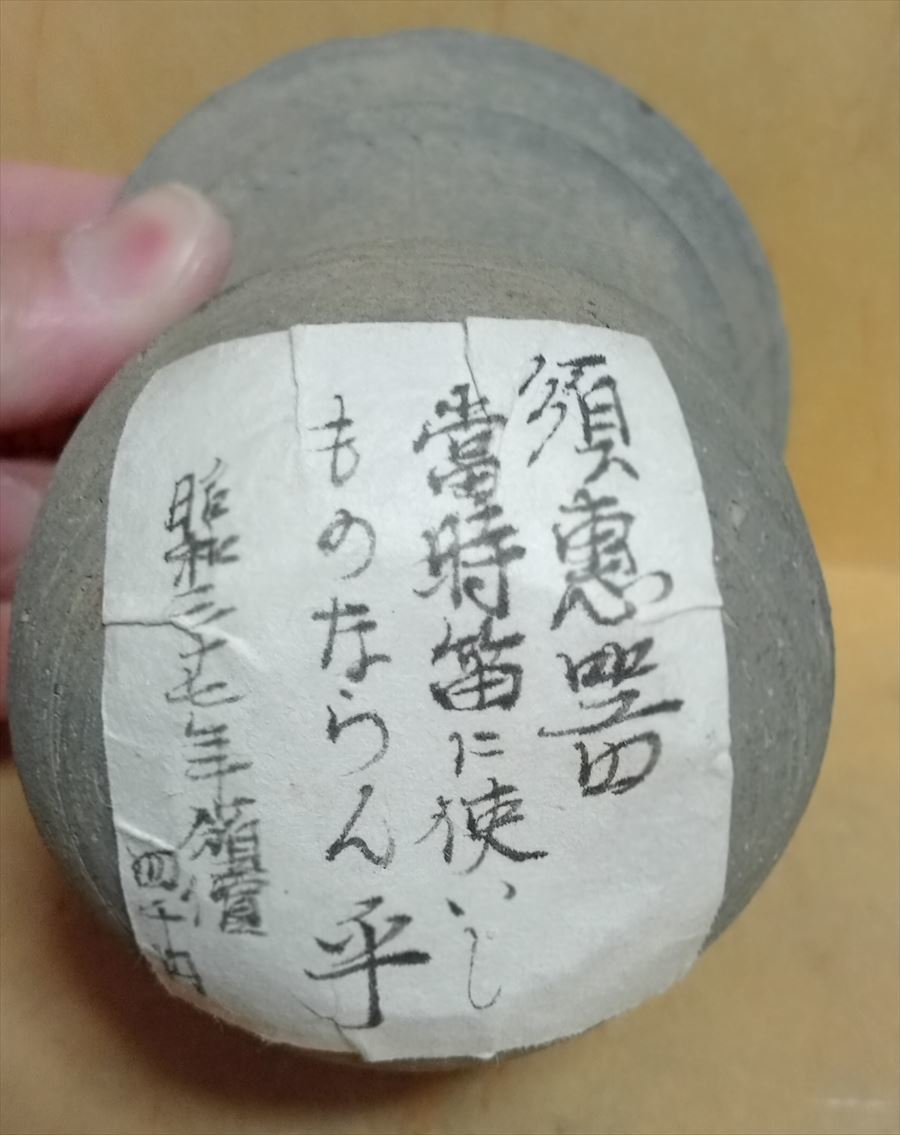 須惠器
當時笛に使いし
ものならん乎
昭和三十七年箱價
四千円